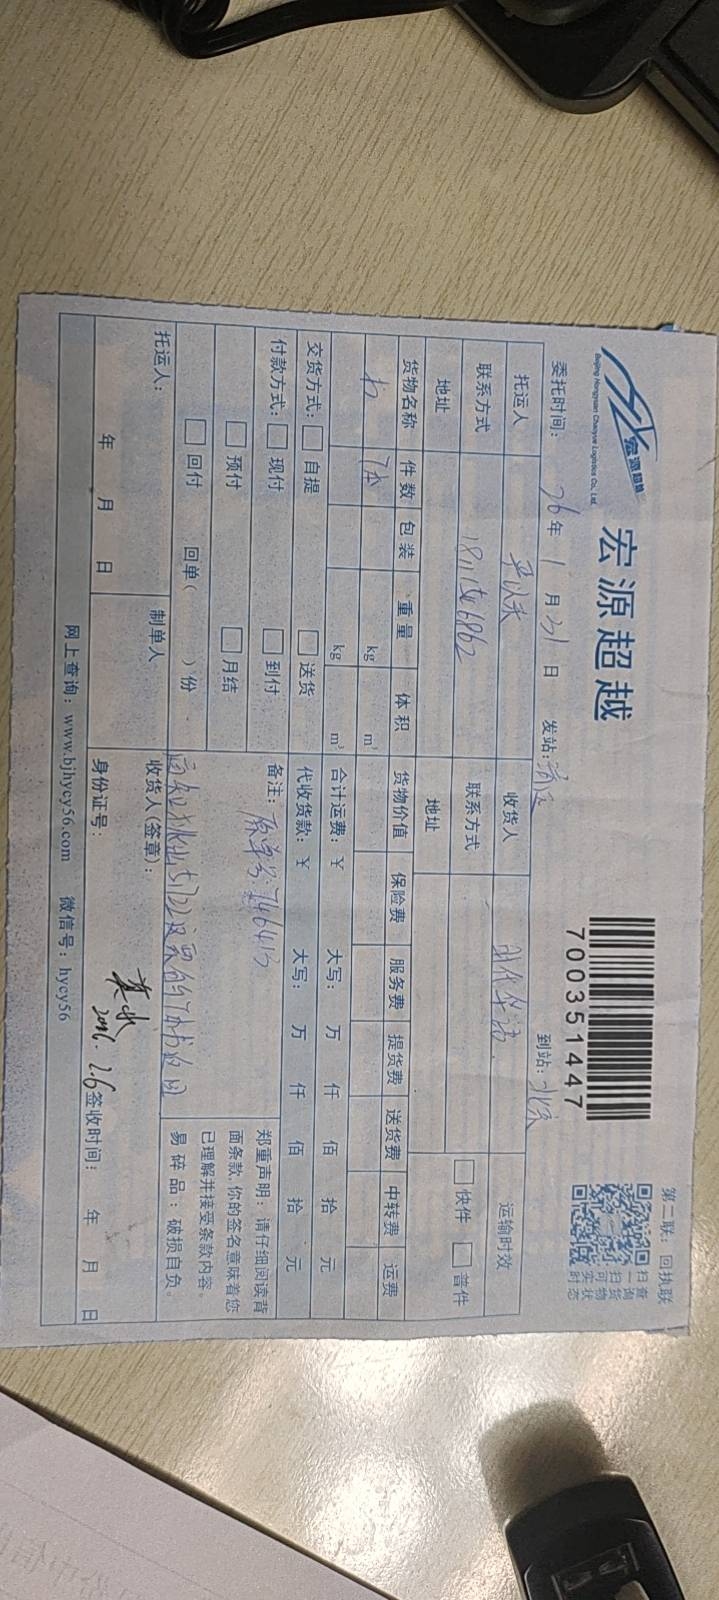 宏源超越
Beijing Hongyuan Chaoyue Logistics Co., Ltd.
宏源超越
7003514​47
第二联：回执联
扫一扫可实时
查询货物状态
委托时间： 26 年 1 月 31 日 发站： 到站：北京
托运人 收货人 时代华语 运输时效
联系方式 联系方式 快件 普件
地址 地址
货物名称 件数 包装 重量 体积 货物价值 保险费 服务费 提货费 送货费 中转费 运费
书 7本 kg m³
kg m³ 合计运费：￥ 大写： 万 仟 佰 拾 元
交货方式： 自提 送货 代收货款：￥ 大写： 万 仟 佰 拾 元
付款方式： 现付 到付 备注： 原单号：746413
预付 月结
回付 回单（ ）份 7本书返回
郑重声明：请仔细阅读背
面条款，你的签名意味着您
已理解并接受条款内容。
易碎品：破损自负。
托运人： 制单人 收货人(签章)：
年 月 日 身份证号： 2026.2.6 签收时间： 年 月 日
网上查询：www.bjhycy56.com 微信号：hycy56